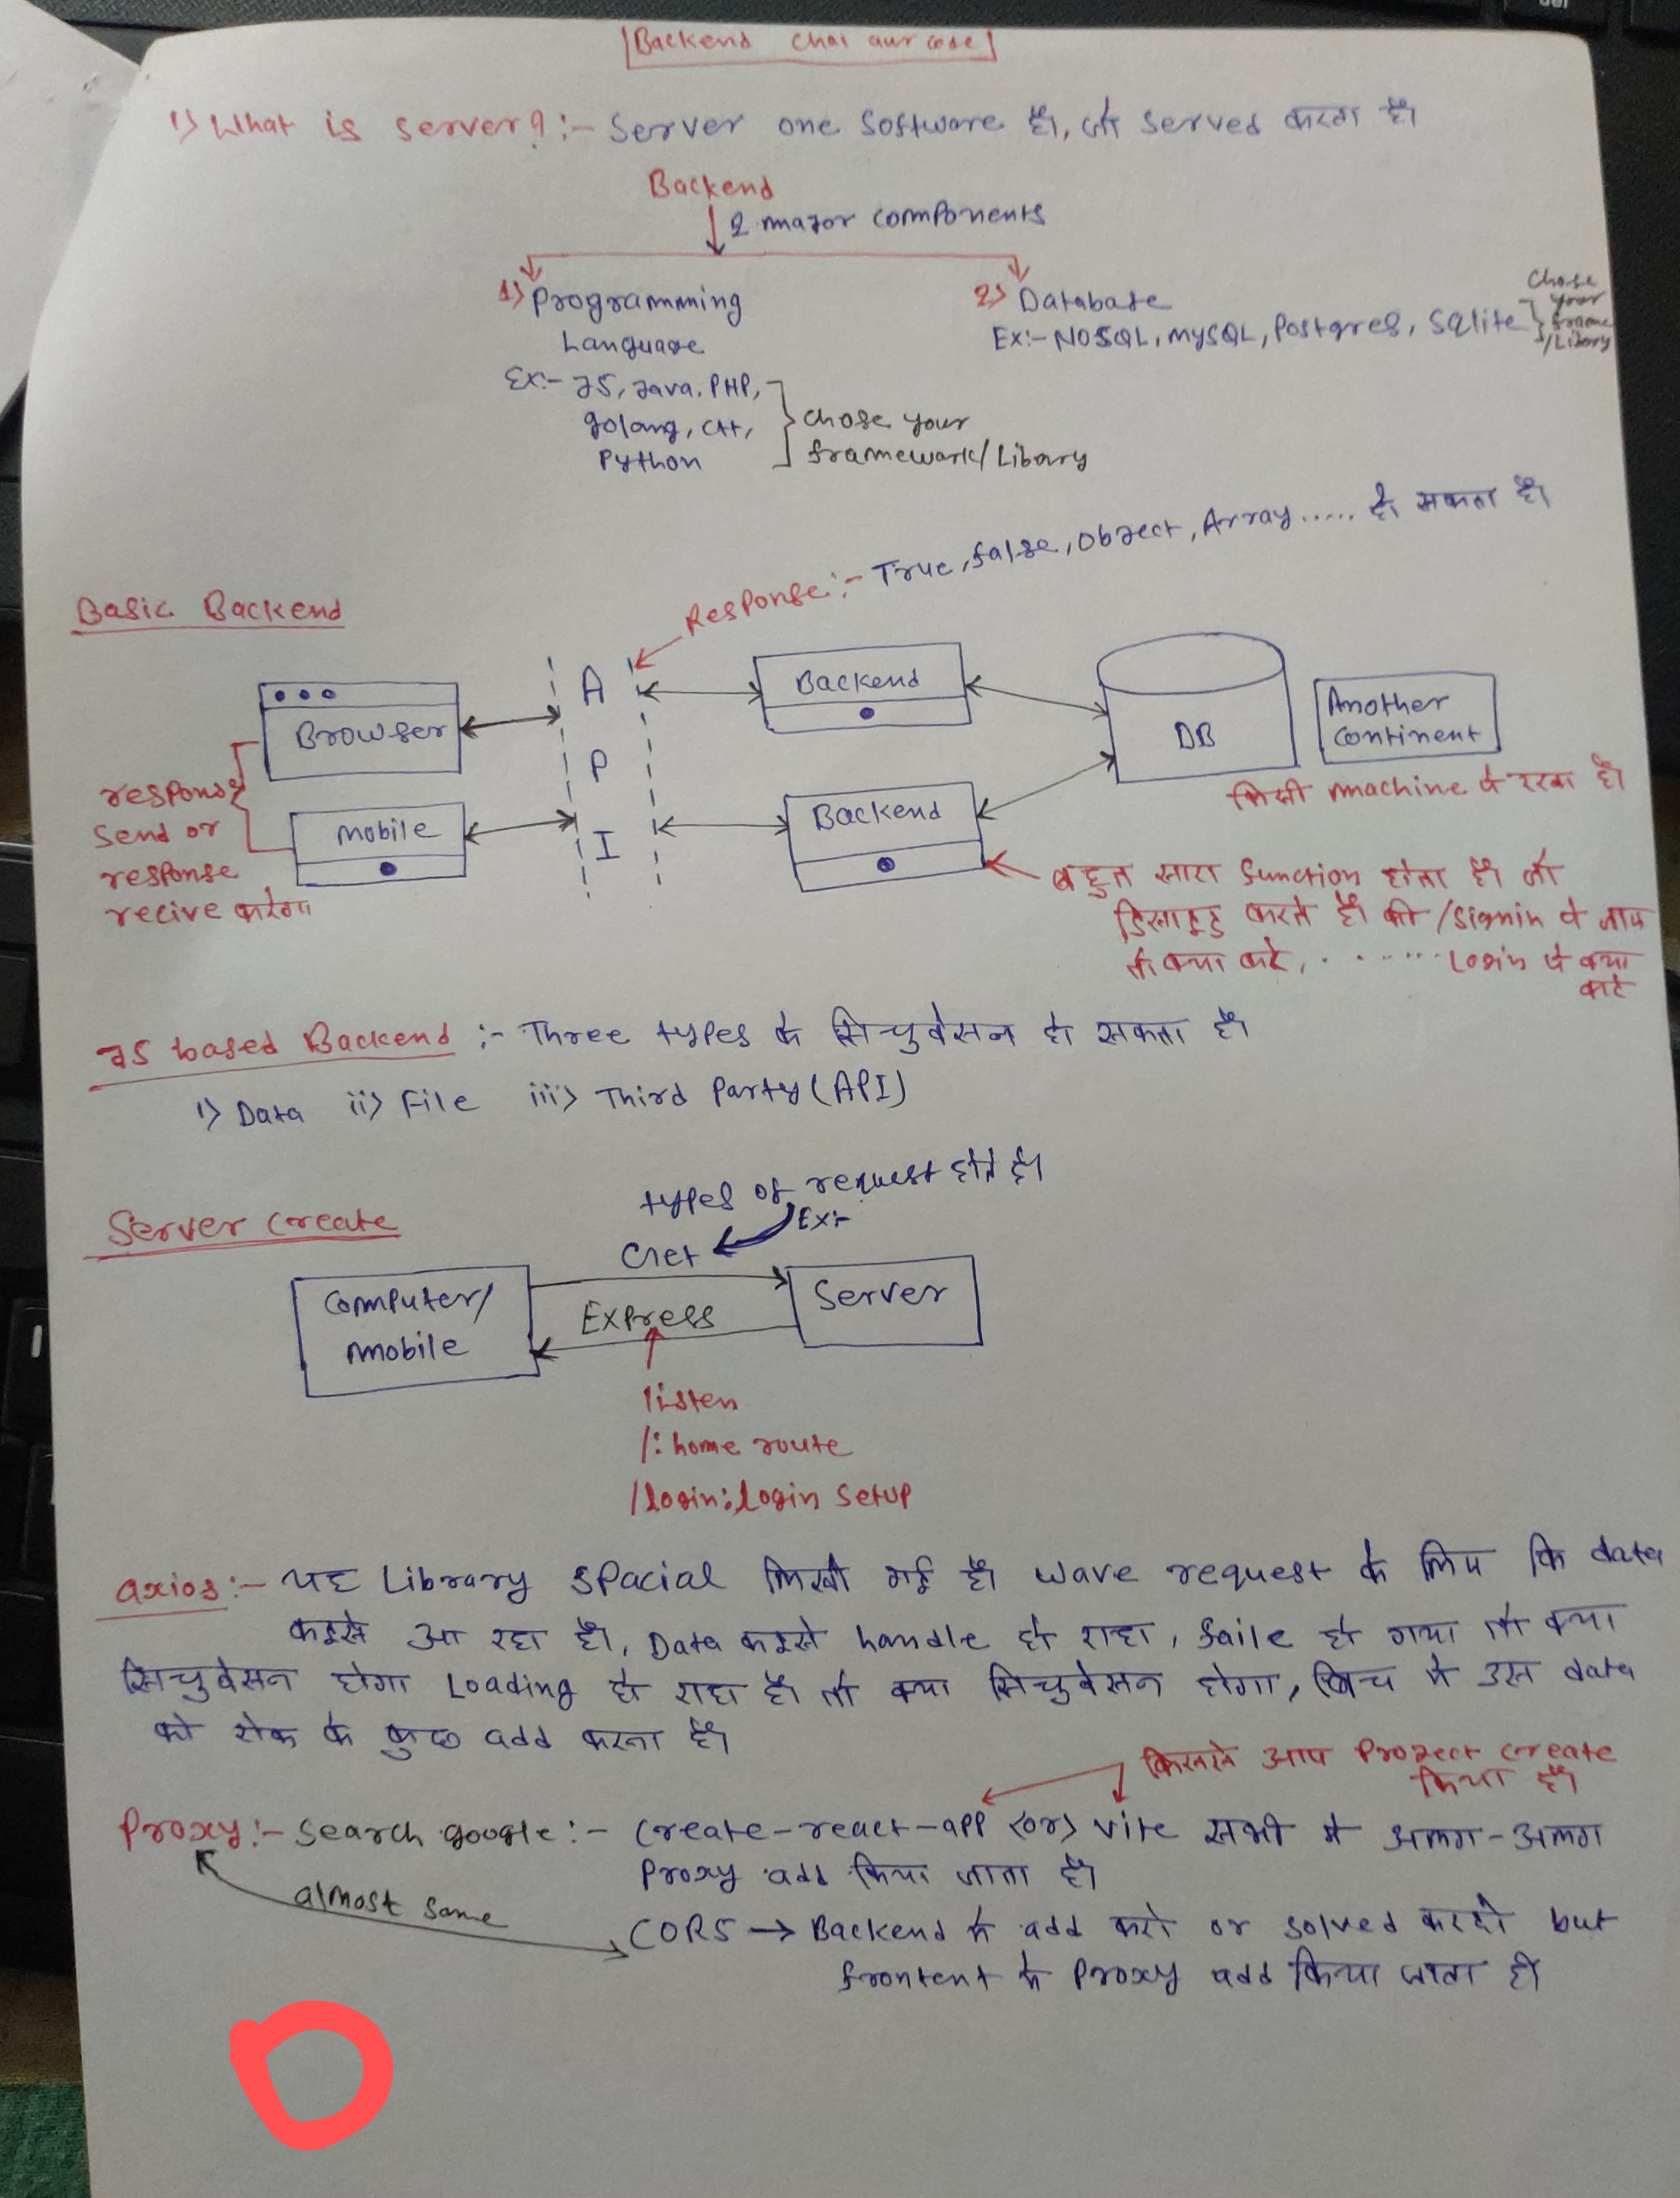 Backend chai aur code
1) What is server? :- Server one Software है, जो Served करता है।
Backend
2 major components
1) Programming
Language
Ex:- JS, Java, PHP,
golang, C++,
Python
chose your
framework/Libary
2) Database
Ex:- NOSQL, MYSQL, Postgres, Sqlite
Chose
your
frame
/Libary
Basic Backend
Response :- True, false, Object, Array..... हो सकता है।
Browser
Mobile
response
Send or
response
recive करेगा
A
P
I
Backend
Backend
DB
Another
continent
किसी machine में रखा है।
बहुत सारा function होता है। जो
डिसाइड करते है। की /Signin में जाय
तो क्या करे, ........ Login में क्या
करे
JS based Backend :- Three types के सिचुवेसन हो सकता है।
i) Data ii) File iii) Third Party (API)
Server Create
types of request होते है।
Ex:-
Get
Computer/
mobile
Express
Server
listen
/: home route
/login: login setup
axios :- यह Library spacial लिखी गई है। wave request के लिए कि data
कइसे आ रहा है, Data कइसे handle हो राहा, faile हो गया तो क्या
सिचुवेसन होगा Loading हो राहा है। तो क्या सिचुवेसन होगा, बिच में उस data
को रोक के कुछ add करना है।
किसमे आप Project create
किया है।
Proxy :- Search google :- Create-react-app (or) vite सभी में अलग-अलग
Proxy add किया जाता है।
almost same
CORS → Backend में add करो or solved करदो but
frontent में Proxy add किया जाता है